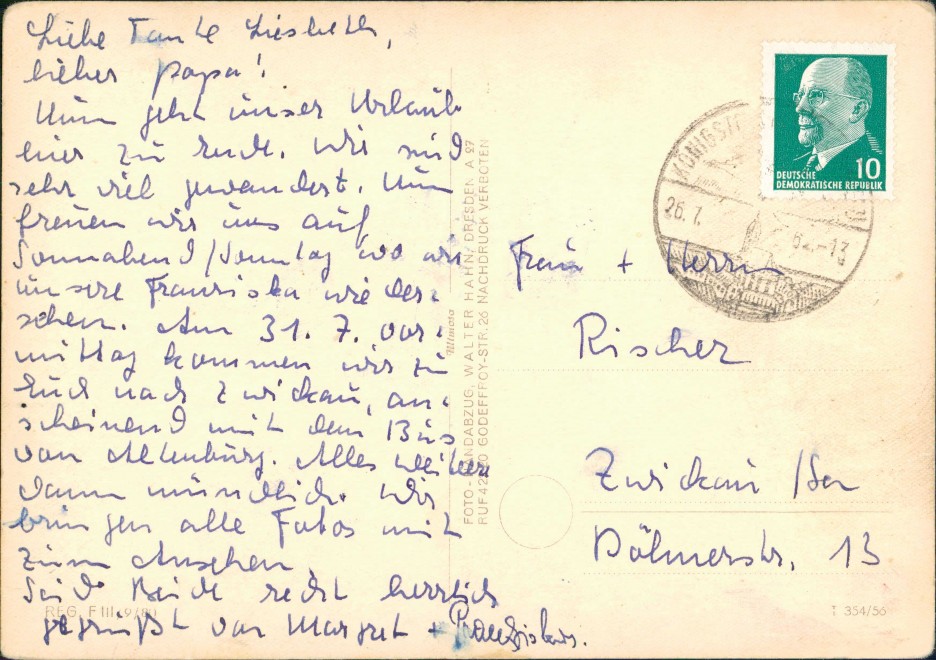 Liebe Tante Liesbeth,
lieber Papa!
Nun geht unser Urlaub
hier zu Ende. Wir sind
sehr viel gewandert. Nun
freuen wir uns auf
Sonnabend/Sonntag wo wir
unsere Franziska wieder-
sehen. Am 31. 7. vor-
mittag kommen wir zu
rück nach Zwickau, an-
scheinend mit dem Bus
von Altenburg. Alles weitere
dann mündlich. Wir
bringen alle Fotos mit
zum Ansehen
Seid Beide recht herzlich
gegrüßt von Margret +
REG. F III /9/60
FOTO-HANDABZUG, WALTER HAHN, DRESDEN A 27
RUF 42 GODEFFROY-STR. 26 NACHDRUCK VERBOTEN
DEUTSCHE
DEMOKRATISCHE REPUBLIK
10
KÖNIGST
26.7. 62.-13
Frau + Herrn
Rischer
Zwickau /Sa
Dölnerstr. 13
T 354/56